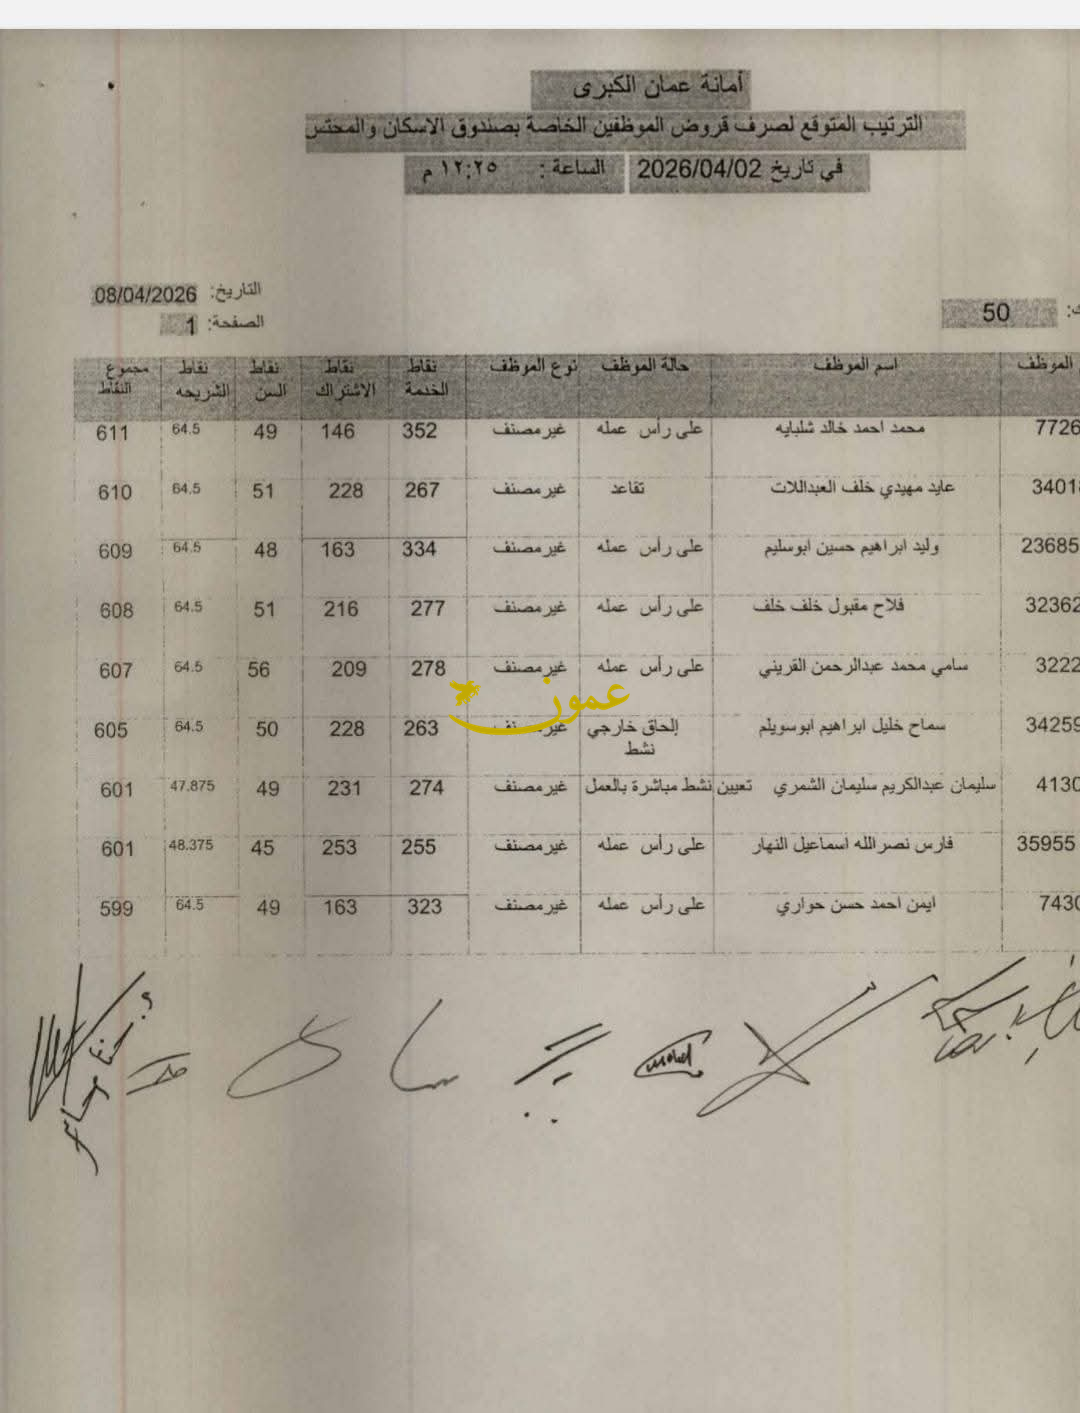 أمانة عمان الكبرى
الترتيب المتوقع لصرف قروض الموظفين الخاصة بصندوق الاسكان والمحتس
في تاريخ 2026/04/02 الساعة : ١٢:٢٥ م
التاريخ: 08/04/2026
50
الصفحة: 1
الموظف اسم الموظف حالة الموظف نوع الموظف نقاط الخدمة نقاط الاشتراك نقاط السن نقاط الشريحه مجموع النقاط
7726 محمد احمد خالد شلبايه على رأس عمله غير مصنف 352 146 49 64.5 611
3401 عايد مهيدي خلف العبداللات تقاعد غير مصنف 267 228 51 64.5 610
23685 وليد ابراهيم حسين ابوسليم على رأس عمله غير مصنف 334 163 48 64.5 609
32362 فلاح مقبول خلف خلف على رأس عمله غير مصنف 277 216 51 64.5 608
3222 سامي محمد عبدالرحمن القريني على رأس عمله غير مصنف 278 209 56 64.5 607
34259 سماح خليل ابراهيم ابوسويلم إلحاق خارجي نشط غير مصنف 263 228 50 64.5 605
4130 سليمان عبدالكريم سليمان الشمري تعيين نشط مباشرة بالعمل غير مصنف 274 231 49 47.875 601
35955 فارس نصرالله اسماعيل النهار على رأس عمله غير مصنف 255 253 45 48.375 601
7430 ايمن احمد حسن حواري على رأس عمله غير مصنف 323 163 49 64.5 599
عمون